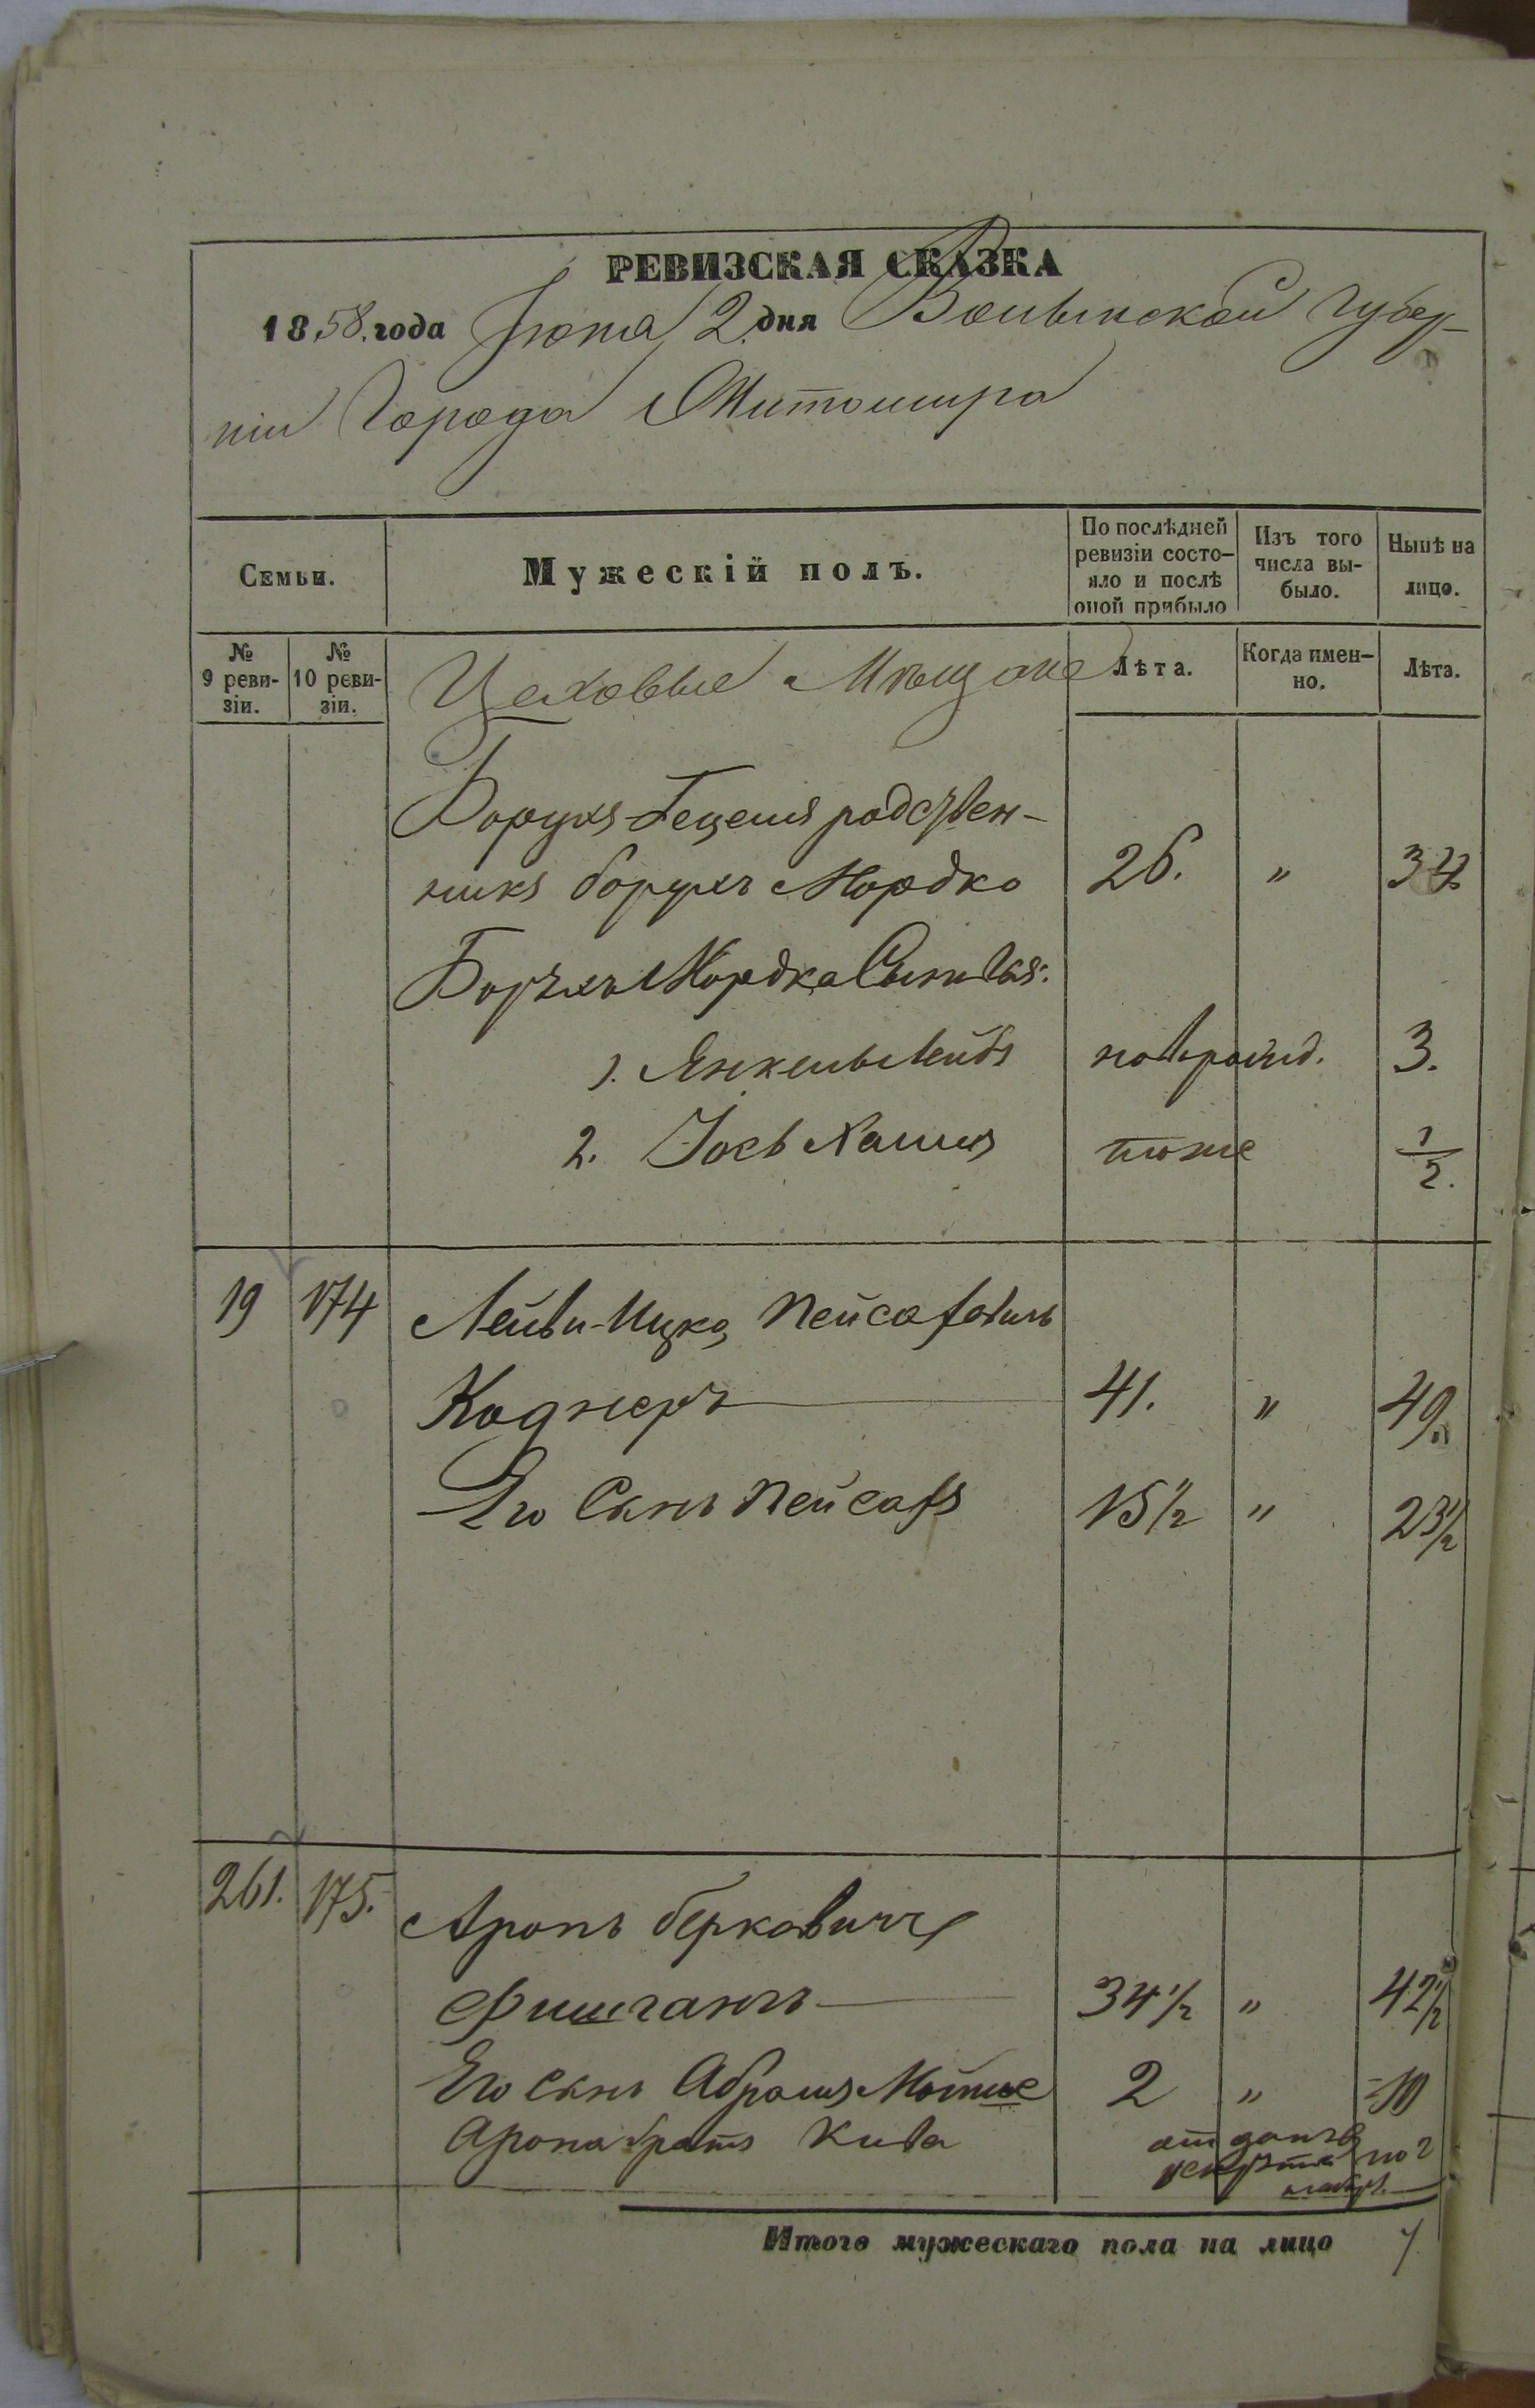 РЕВИЗСКАЯ СКАЗКА
1858. года Іюня 2. дня Волынской Губер-
ніи Города Житомира
Семьи.
Мужескій полъ.
По послѣдней ревизіи состо-
яло и послѣ оной прибыло
Изъ того числа вы-
было.
Нынѣ на лицо.
№ 9 реви-
зіи.
№ 10 реви-
зіи.
Цеховые Мѣщане
Лѣта.
Когда имен-
но.
Лѣта.
Борухъ Гецеля родствен-
никъ борухъ Мордко 26. " 34
Борухъ Мордка Сыновья:
1. Янкель Лейбъ новорожд. 3.
2. Іось Хаимъ тоже 1/2.
19 174 Лейви-Ицко Пейсаховичъ
Коднеръ 41. " 49.
Его Сынъ Пейсахъ 15 1/2 " 23 1/2
261. 175. Аронъ берковичъ
Фишганъ 34 1/2 " 42 1/2
Его сынъ Абрамъ Мотье 2 " 10
Арона братъ Кива отданъ в
Итого мужескаго пола на лицо 7